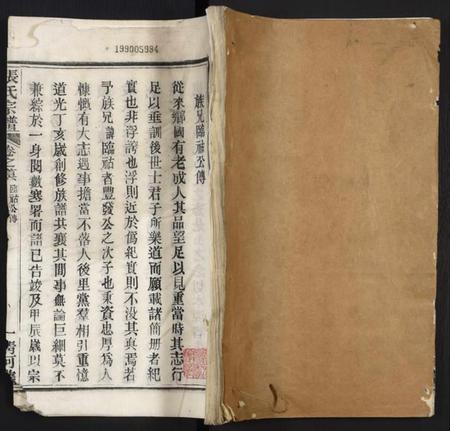 199005984
族兄臨祜公傳
從來鄉國有老成人其品望足以見重當時其志行
足以垂訓後世士君子所樂道而願載諸簡册者紀
實也非浮誇也浮則近於僞紀實則不没其真焉若
予族兄諱臨祜者豐發公之次子也秉資忠厚爲人
慷慨有大志遇事擔當不落人後里黨羣相引重憶
道光丁亥歲創修族譜共襄其間事無論巨細莫不
兼綜於一身閱數寒暑而譜已告竣及甲辰歲以宗
張氏宗譜
卷之
臨祜公傳
一